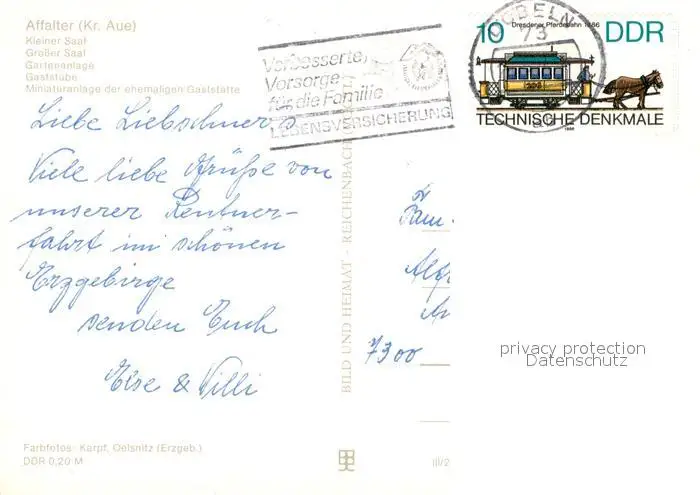 Affalter (Kr. Aue)
Kleiner Saal
Großer Saal
Gartenanlage
Gaststube
Miniaturanlage der ehemaligen Gaststätte
Verbesserte
Vorsorge
für die Familie
LEBENSVERSICHERUNG
DÖBELN
73
10 Dresdener Pferdebahn 1886 DDR
TECHNISCHE DENKMALE
1986
Liebe Liebschners
Viele liebe Grüße von
unserer Rentner-
fahrt im schönen
Erzgebirge
senden Euch
Else & Willi
BILD UND HEIMAT · REICHENBACH
Fam.
7300
privacy protection
Datenschutz
Farbfotos: Karpf, Oelsnitz (Erzgeb.)
DDR 0,20 M
III/2